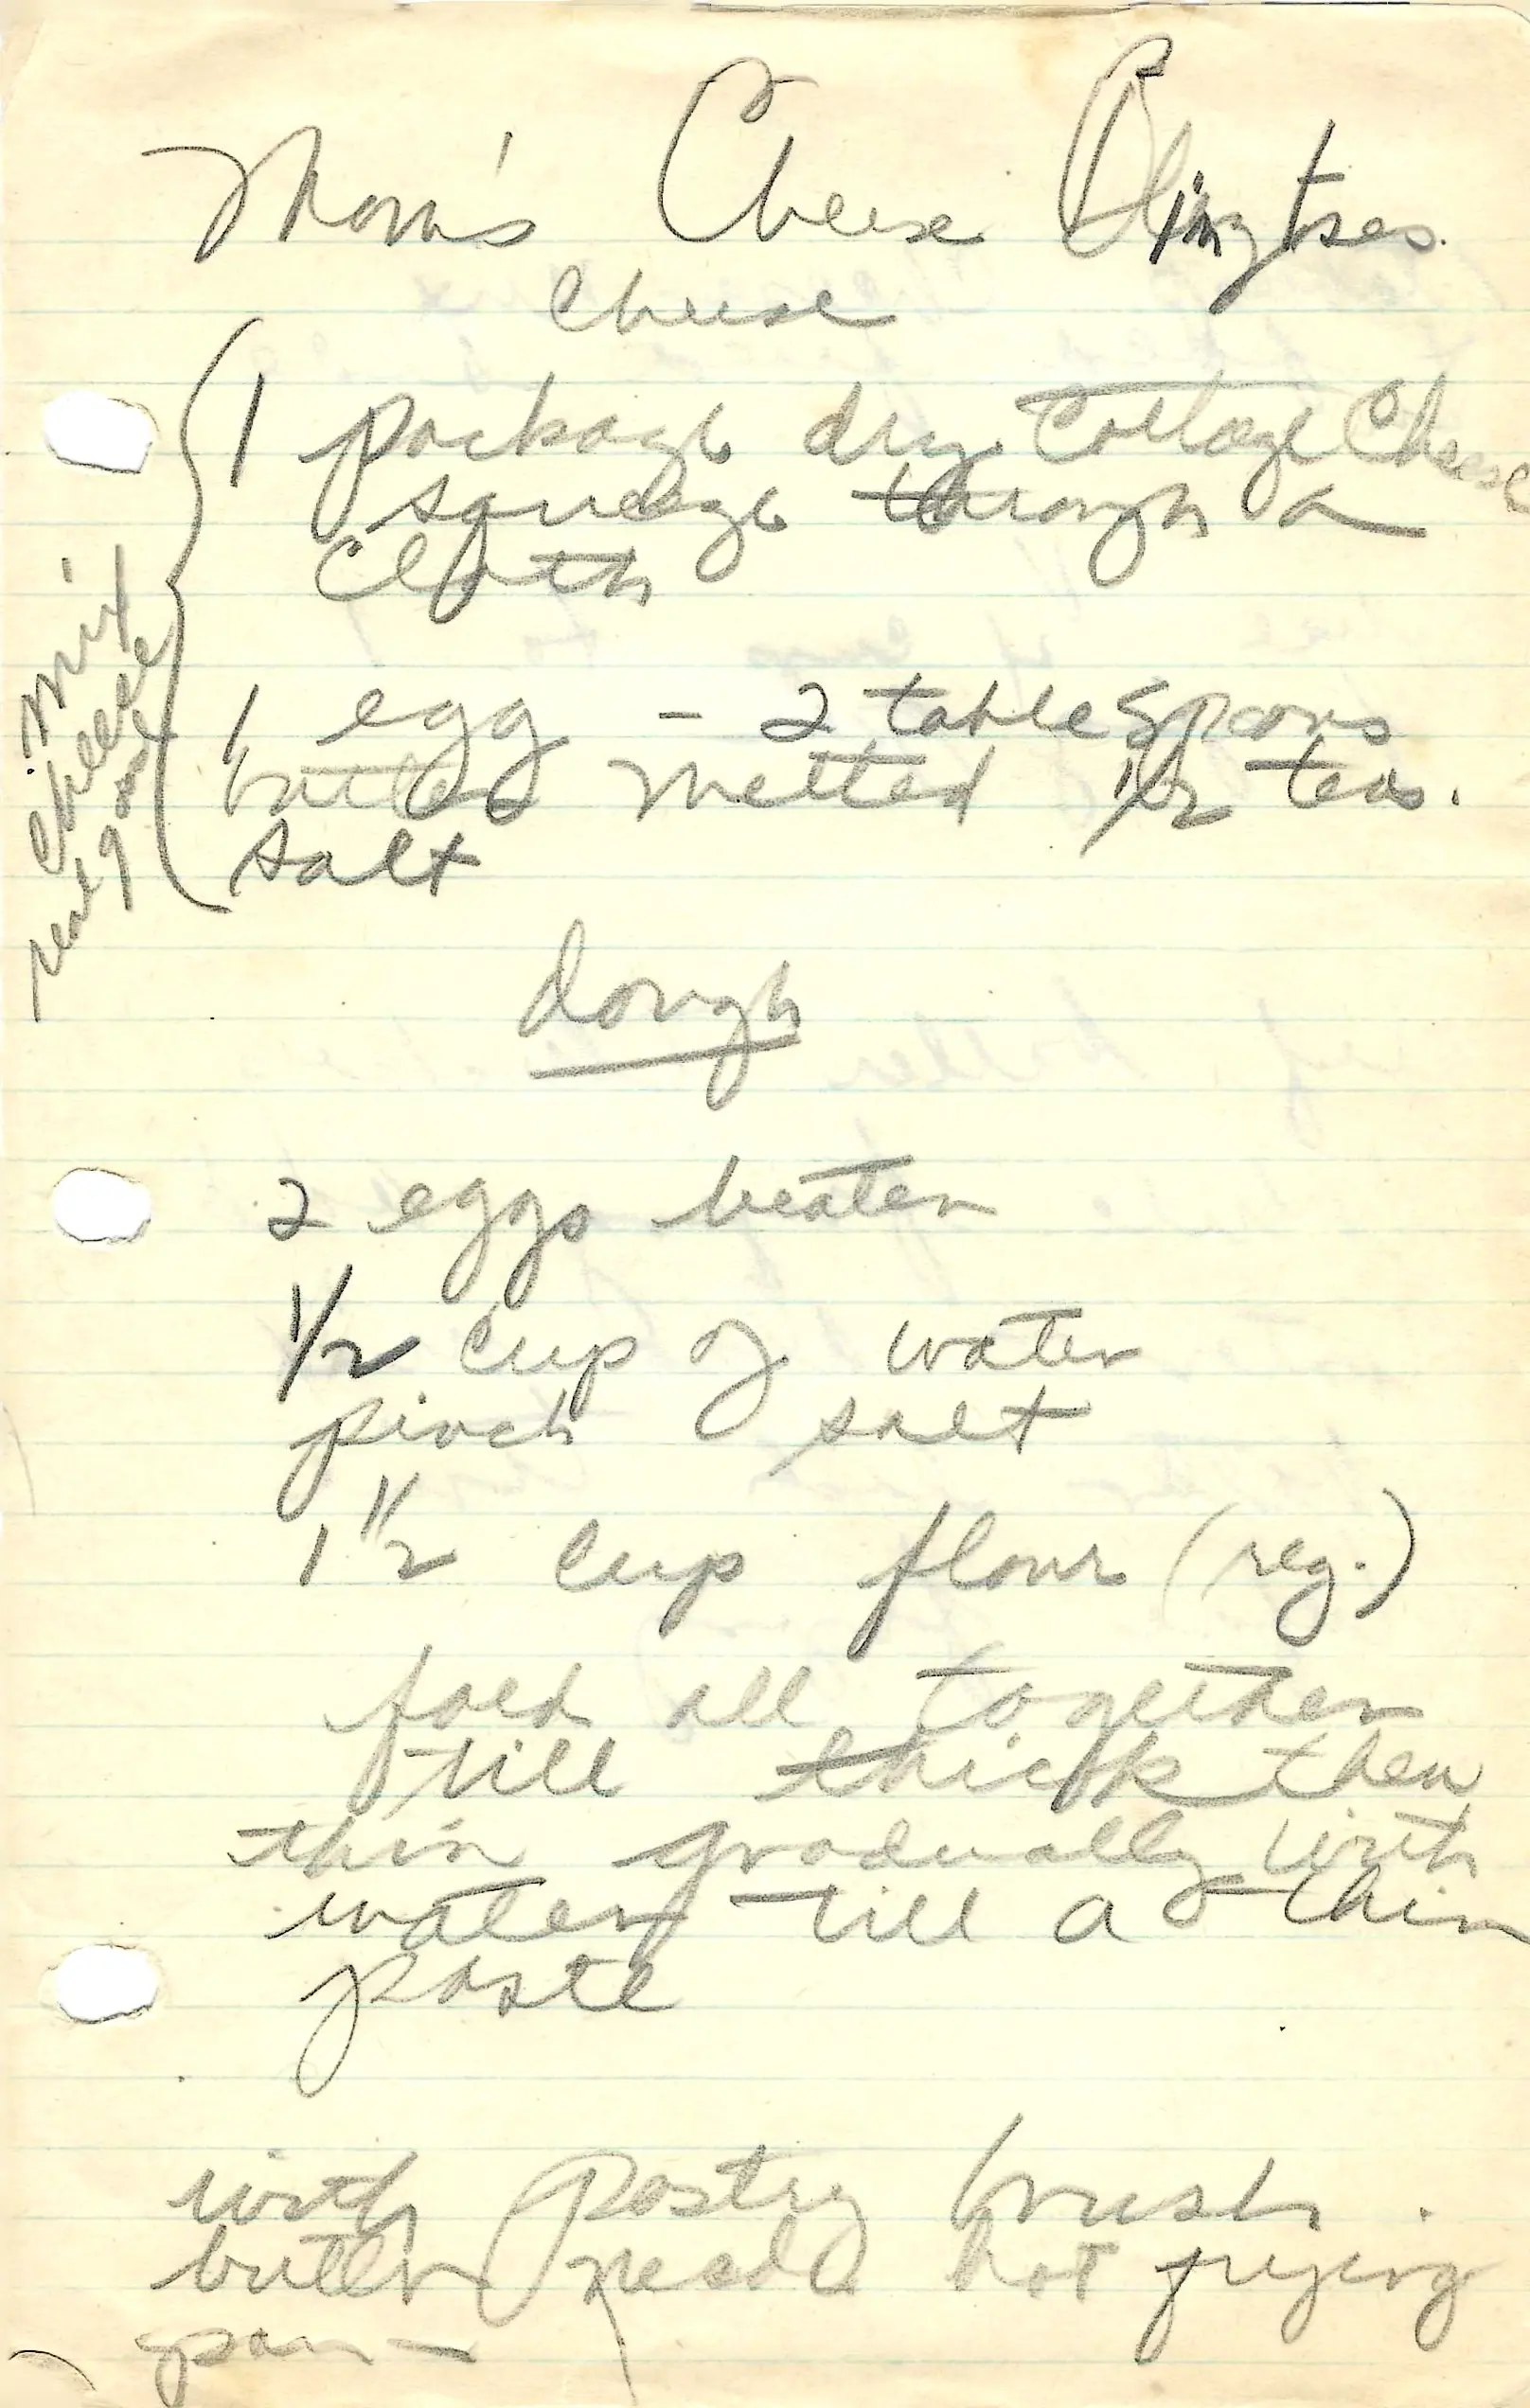 Mom's Cheese Blingtses.
Cheese
1 package dry Cottage Cheese
squeeze through a
Cloth
1 egg - 2 tablespoons
butter melted 1/2 teas.
salt
Mix
Cheese
real good
dough
2 eggs beaten
1/2 cup of water
pinch salt
1 1/2 cup flour (reg.)
fold all together
till thick then
thin gradually with
water till a thin
paste
with pastry brush
butter hot frying
pan -